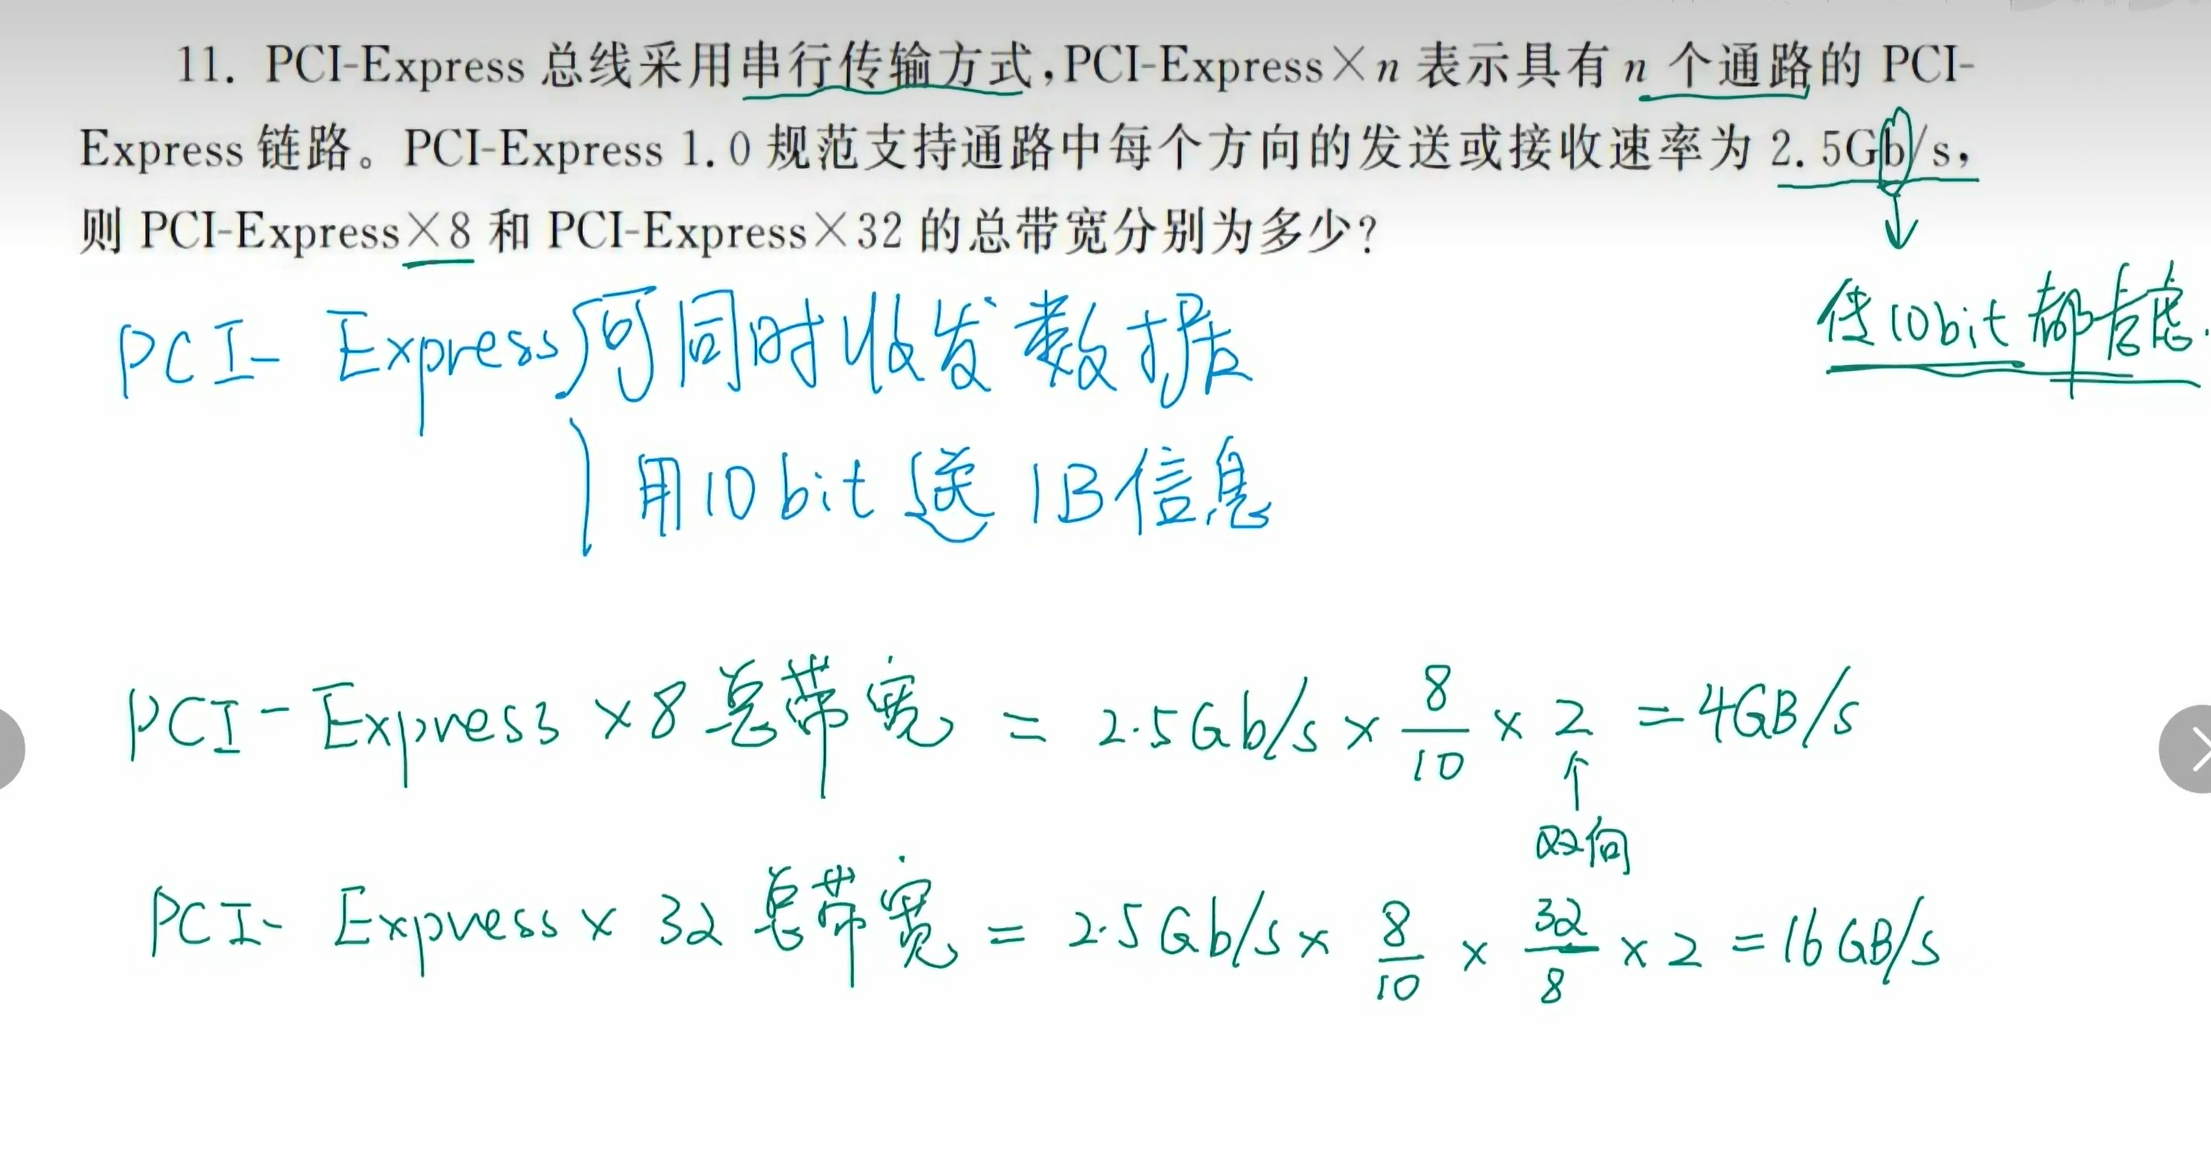 11. PCI-Express 总线采用串行传输方式,PCI-Express×n 表示具有 n 个通路的 PCI-
Express 链路。PCI-Express 1.0 规范支持通路中每个方向的发送或接收速率为 2.5Gb/s,
则 PCI-Express×8 和 PCI-Express×32 的总带宽分别为多少?
传10bit都考虑.
PCI- Express 可同时收发数据
用10bit 送 1B信息
PCI-Express ×8 总带宽 = 2.5Gb/s × 8/10 × 2 = 4GB/s
双向
PCI- Express × 32 总带宽 = 2.5Gb/s × 8/10 × 32/8 × 2 = 16GB/s